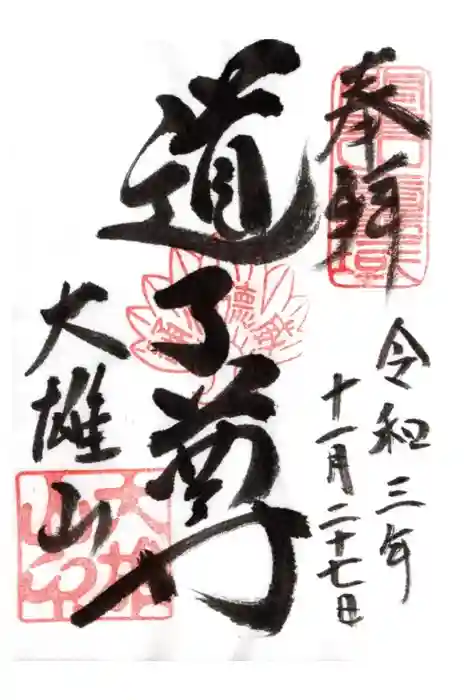 奉拝
令和三年
十一月二十七日
道了尊
大雄山